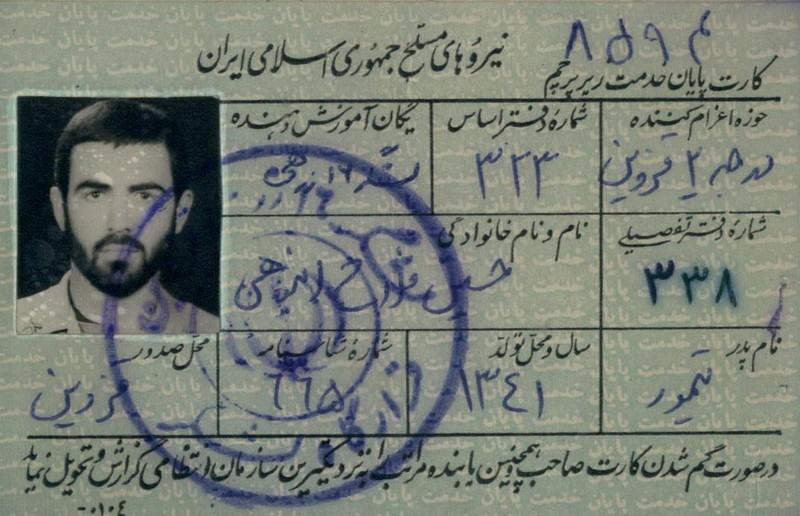 نیروهای مسلح جمهوری اسلامی ایران
م ۸۵۹
کارت پایان خدمت زیر پرچم
حوزه اعزام کننده
درجه ۲ قزوین
شمارهٔ دفتر اساس
۳۲۳
یگان آموزش دهنده
شمارهٔ دفتر تفصیلی
۳۳۸
نام و نام خانوادگی
نام پدر
تیمور
سال و محل تولد
۱۳۴۱
شمارهٔ شناسنامه
۶۶۵
محل صدور
قزوین
درصورت گم شدن کارت صاحب و همچنین یابنده مراتب را به نزدیکترین سازمان انتظامی گزارش و تحویل نماید